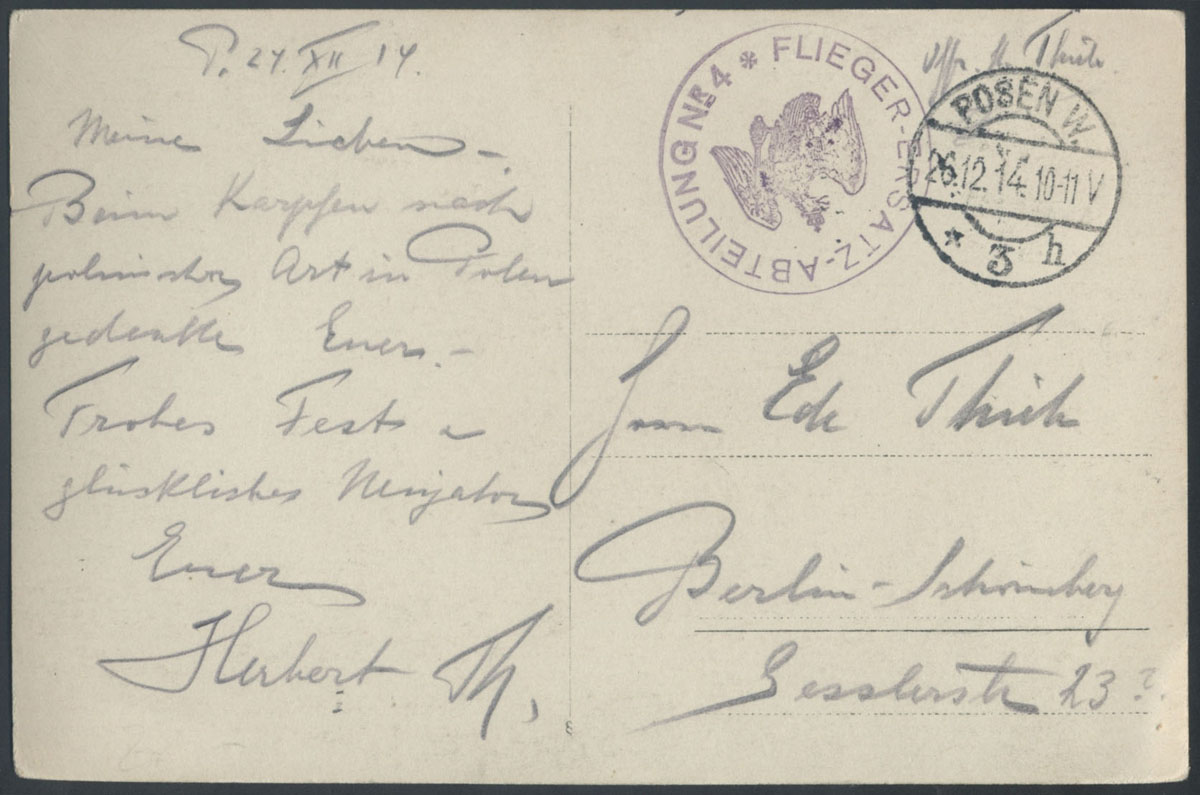 P. 24. XII 14.
Meine Lieben –
Beim Karpfen nach
polnischer Art in Polen
gedenke Euer. –
Frohes Fest u
glückliches Neujahr
Euer
Herbert Th.
FLIEGER-ERSATZ-ABTEILUNG NR. 4 *
POSEN W.
26.12.14. 10-11 V
* 3 h
Herrn Edr
Berlin-Schöneberg
Gesslerstr 23